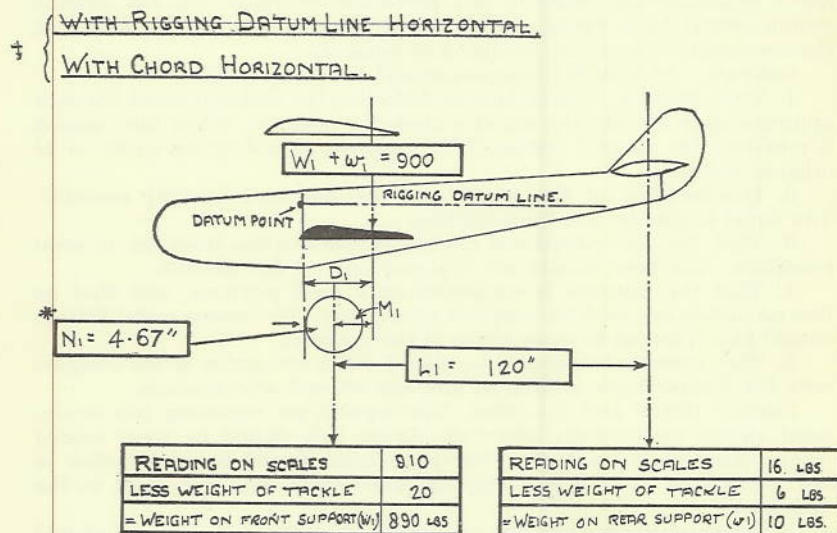 ‡ { WITH RIGGING DATUM LINE HORIZONTAL.
WITH CHORD HORIZONTAL.
W1 + w1 = 900
RIGGING DATUM LINE.
DATUM POINT
D1
* M1
N1 = 4.67"
L1 = 120"
READING ON SCALES 910
LESS WEIGHT OF TACKLE 20
= WEIGHT ON FRONT SUPPORT (W1) 890 LBS
READING ON SCALES 16. LBS
LESS WEIGHT OF TACKLE 6 LBS
= WEIGHT ON REAR SUPPORT (w1) 10 LBS.